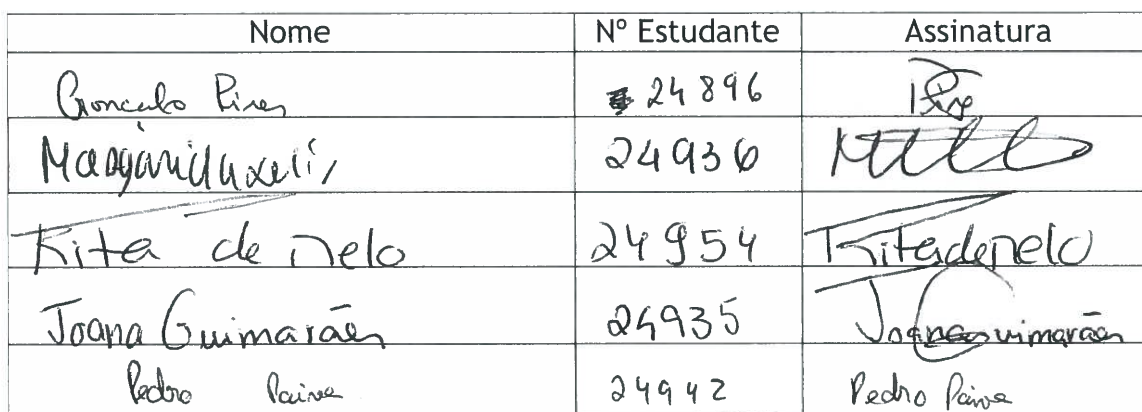 Nome Nº Estudante Assinatura
Gonçalo Pires 24896
24936
Rita de Melo 24954 Rita de Melo
Joana Guimarães 24935 Joana Guimarães
Pedro Paiva 24942 Pedro Paiva